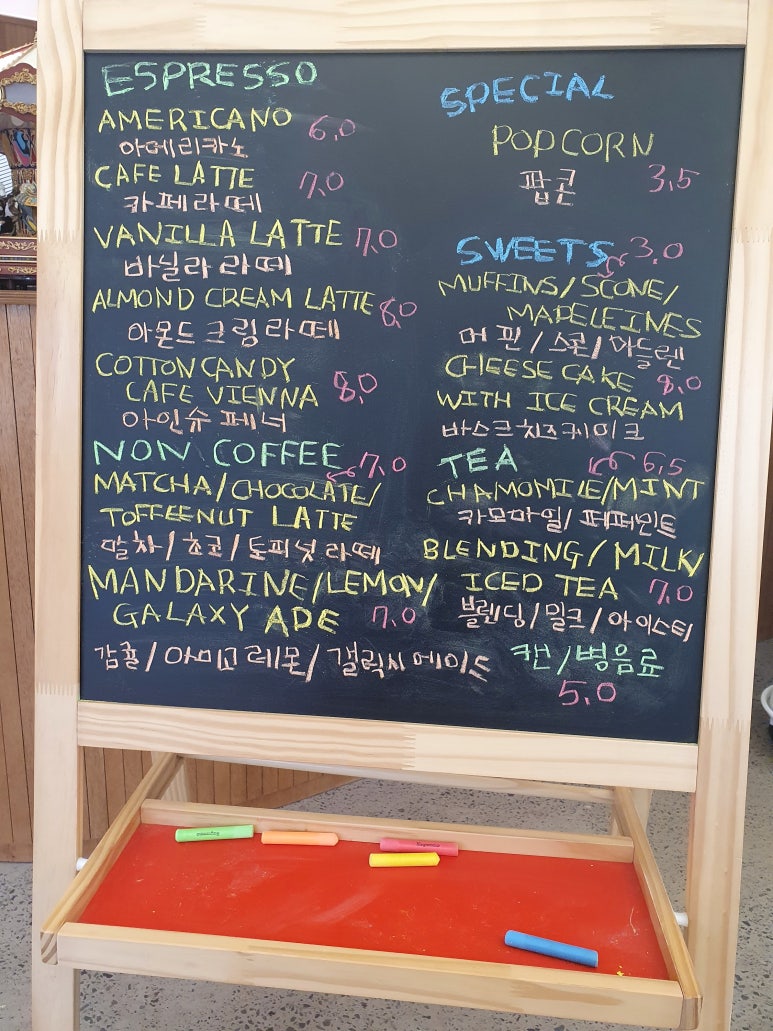 ESPRESSO
AMERICANO 6,0
아메리카노
CAFE LATTE 7,0
카페라떼
VANILLA LATTE 7,0
바닐라 라떼
ALMOND CREAM LATTE 8,0
아몬드 크림 라떼
COTTON CANDY
CAFE VIENNA 8,0
아인슈페너
NON COFFEE 7,0
MATCHA/CHOCOLATE/
TOFFEENUT LATTE
말차/초코/토피넛 라떼
MANDARINE/LEMON/
GALAXY ADE 7,0
감귤/아미고 레몬/갤럭시 에이드
SPECIAL
POPCORN
팝콘 3,5
SWEETS 3,0
MUFFINS/SCONE/
MADELEINES
머핀/스콘/마들렌
CHEESE CAKE 8,0
WITH ICE CREAM
바스크치즈케이크
TEA 6,5
CHAMOMILE/MINT
카모마일/페퍼민트
BLENDING/MILK/
ICED TEA 7,0
블렌딩/밀크/아이스티
캔/병음료
5,0